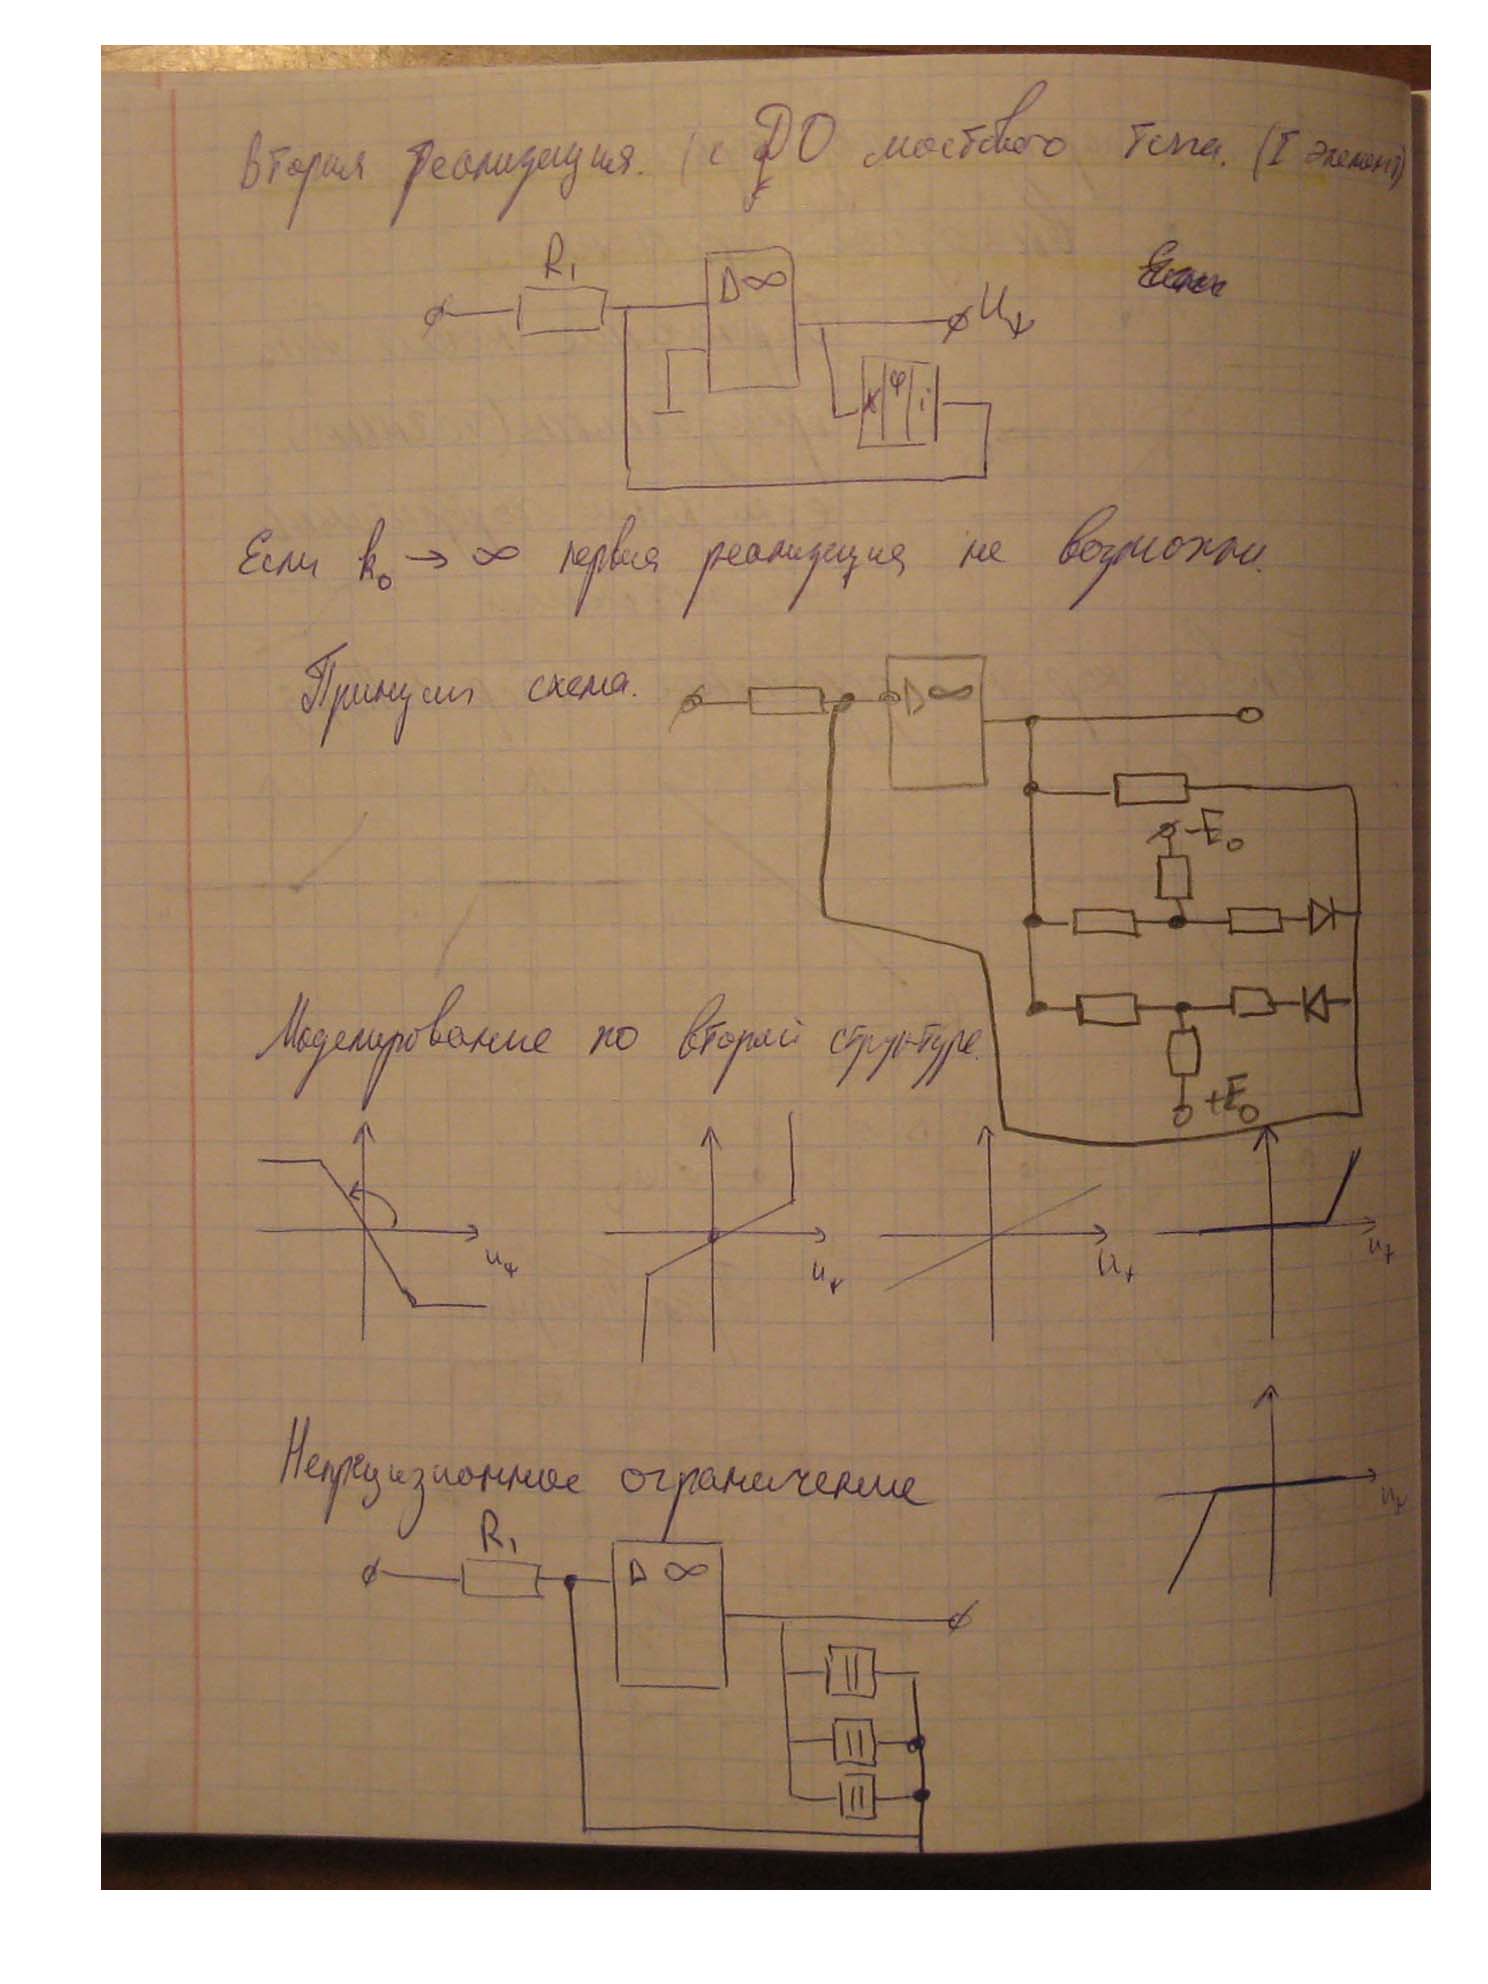 Вторая реализация. (с ДО мостового типа. (I элемент)
R₁
▷∞
U₊
x φ i
Если k₀ → ∞ первая реализация не возможна.
Принцип схема.
▷∞
-E₀
+E₀
Моделирование по второй структуре.
u₊
u₊
u₊
u₊
Непрецизионное ограничение
u₊
R₁
▷ ∞